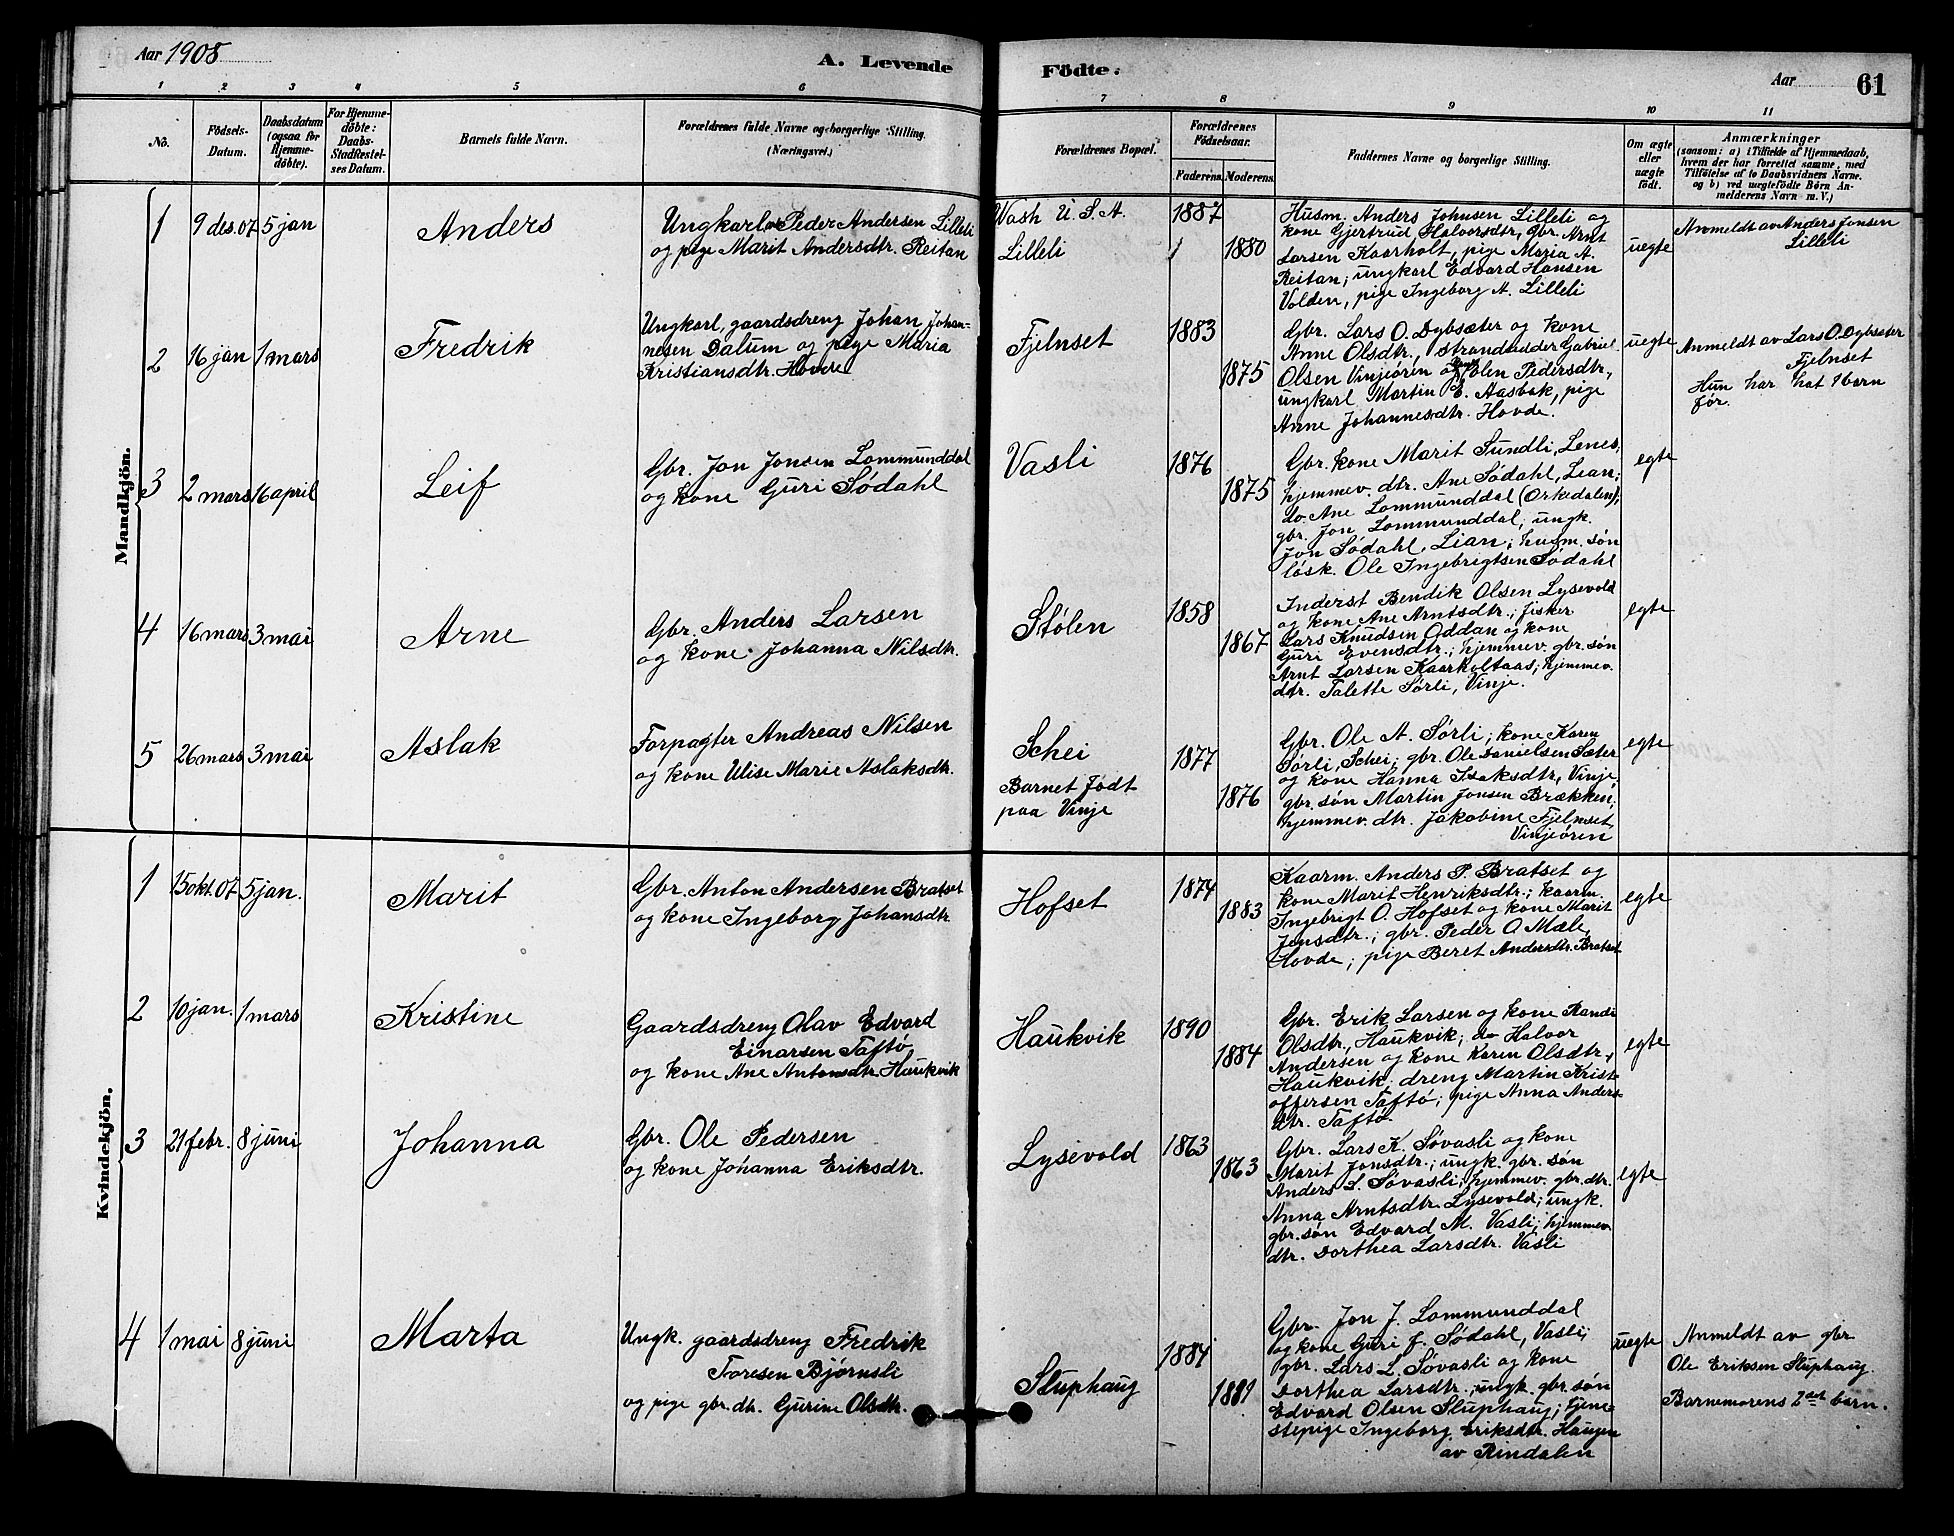 Aar 1908
A. Levende
Födte.
Aar
61
1 2 3 4 5 6 7 8 9 10 11
No.
Födsels-
Datum.
Daabsdatum
(ogsaa for
Hjemme-
döbte).
For Hjemme-
döbte:
Daabs-
Stadfestel-
ses Datum.
Barnets fulde Navn.
Forældrenes fulde Navne og borgerlige Stilling.
(Næringsvei.)
Forældrenes Bopæl.
Forældrenes
Födselsaar.
Faderens. Moderens.
Faddernes Navne og borgerlige Stilling.
Om ægte
eller
uægte
födt.
Anmærkninger
(saasom: a) i Tilfælde af Hjemmedaab,
hvem der har forrettet samme, med
Tilföielse af to Daabsvidners Navne.
og b) ved uægtefödte Börn An-
melderens Navn m. V.)
Mandkjön.
1 9 des. 07 5 jan
Anders
Ungkarl Peder Andersen Lilleli
og pige Marit Andersdtr. Reitan
Wash U.S.A.
Lilleli
1887
1880
Husm. Anders Johnsen Lilleli og
kone Gjertrud Halvorsdtr, gbr. Arnt
Larsen Kaarholt, pige Maria A.
Reitan; ungkarl Edvard Hansen
Volden, pige Ingeborg A. Lilleli
uegte
Anmeldt av Anders Jonsen
Lilleli
2 16 jan 1 mars
Fredrik
Ungkarl, gaardsdreng Johan Johan-
nesen Dalum og pige Maria
Kristiansdtr. Hovde
Fjelnset
1883
1875
Gbr. Lars O. Dybsæter og kone
Anne Olsdtr., strandsidder Gabriel
Olsen Vinjeøren og kone Elen Pedersdtr,
ungkarl Martin E. Aasbak, pige
Anne Johannesdtr. Hovde.
uegte
Anmeldt av Lars O. Dybsæter
Fjelnset
Hun har hat 1 barn
før.
3 2 mars 16 april
Leif
Gbr. Jon Jonsen Lommunddal
og kone Guri Sødahl
Vasli
1876
1875
Gbr. kone Marit Sundli, Lenes;
hjemmev. dtr. Ane Sødahl, Lian;
do. Ane Lommunddal (Orkedalen);
gbr. Jon Lommunddal; ungk.
Jon Sødahl, Lian; husm. søn
løsk. Ole Ingebrigtsen Sødahl
egte
4 16 mars 3 mai
Arne
Gbr. Anders Larsen
og kone Johanna Nilsdtr.
Stølen
1858
1867
Inderst Bendik Olsen Lysevold
og kone Ane Arntsdtr.; fisker
Lars Knudsen Oddan og kone
Guri Evensdtr.; hjemmev. gbr. søn
Arnt Larsen Kaarholtaas; hjemmev.
dtr. Talette Sørli, Vinje.
egte
5 26 mars 3 mai
Aslak
Forpagter Andreas Nilsen
og kone Ulise Marie Aslaksdtr.
Schei
Barnet født
paa Vinje
1877
1876
Gbr. Ole A. Sørli; kone Karen
Sørli, Schei; gbr. Ole Danielsen Sæter
og kone Hanna Isaksdtr, Vinje,
gbr. søn Martin Jonsen Brækken;
hjemmev. dtr. Jakobine Fjelnset,
Vinjeøren
egte
Kvindekjön.
1 15 okt. 07 5 jan.
Marit
Gbr. Anton Andersen Bratset
og kone Ingeborg Johansdtr.
Hofset
1874
1883
Kaarm. Anders P. Bratset og
kone Marit Henriksdtr.; kaarm.
Ingebrigt O. Hofset og kone Marit
Jonsdtr.; gbr. Peder O. Mæle,
Hovde; pige Beret Andersdtr. Bratset
egte
2 10 jan. 1 mars
Kristine
Gaardsdreng Olav Edvard
Einarsen Taftø
og kone Ane Antonsdtr. Haukvik
Haukvik
1890
1884
Gbr. Erik Larsen og kone Randi
Olsdtr., Haukvik; do Halvor
Andersen og kone Karen Olsdtr.,
Haukvik; dreng Martin Krist-
offersen Taftø; pige Anna Anders-
dtr. Taftø.
egte
3 21 febr. 8 juni
Johanna
Gbr. Ole Pedersen
og kone Johanna Eriksdtr.
Lysevold
1863
1863
Gbr. Lars K. Søvasli og kone
Marit Jonsdtr.; ungk. gbr. søn
Anders L. Søvasli; hjemmev. gbr. dtr.
Anna Arntsdtr. Lysevold; ungk.
gbr. søn Edvard M. Vasli; hjemmev.
dtr. Dorthea Larsdtr. Vasli
egte
4 1 mai 8 juni
Marta
Ungk. gaardsdreng Fredrik
Toresen Bjørnsli
og pige gbr. dtr. Gurine Olsdtr.
Sluphaug
1884
1881
Gbr. Jon J. Lommunddal
og kone Guri J. Sødahl, Vasli;
gbr. Lars L. Søvasli og kone
Dorthea Larsdtr.; ungk. gbr. søn
Edvard Olsen Sluphaug; tjene-
stepige Ingeborg Eriksdtr. Haugen
av Rindalen
uegte
Anmeldt av gbr
Ole Eriksen Sluphaug.
Barnemorens 2det barn.